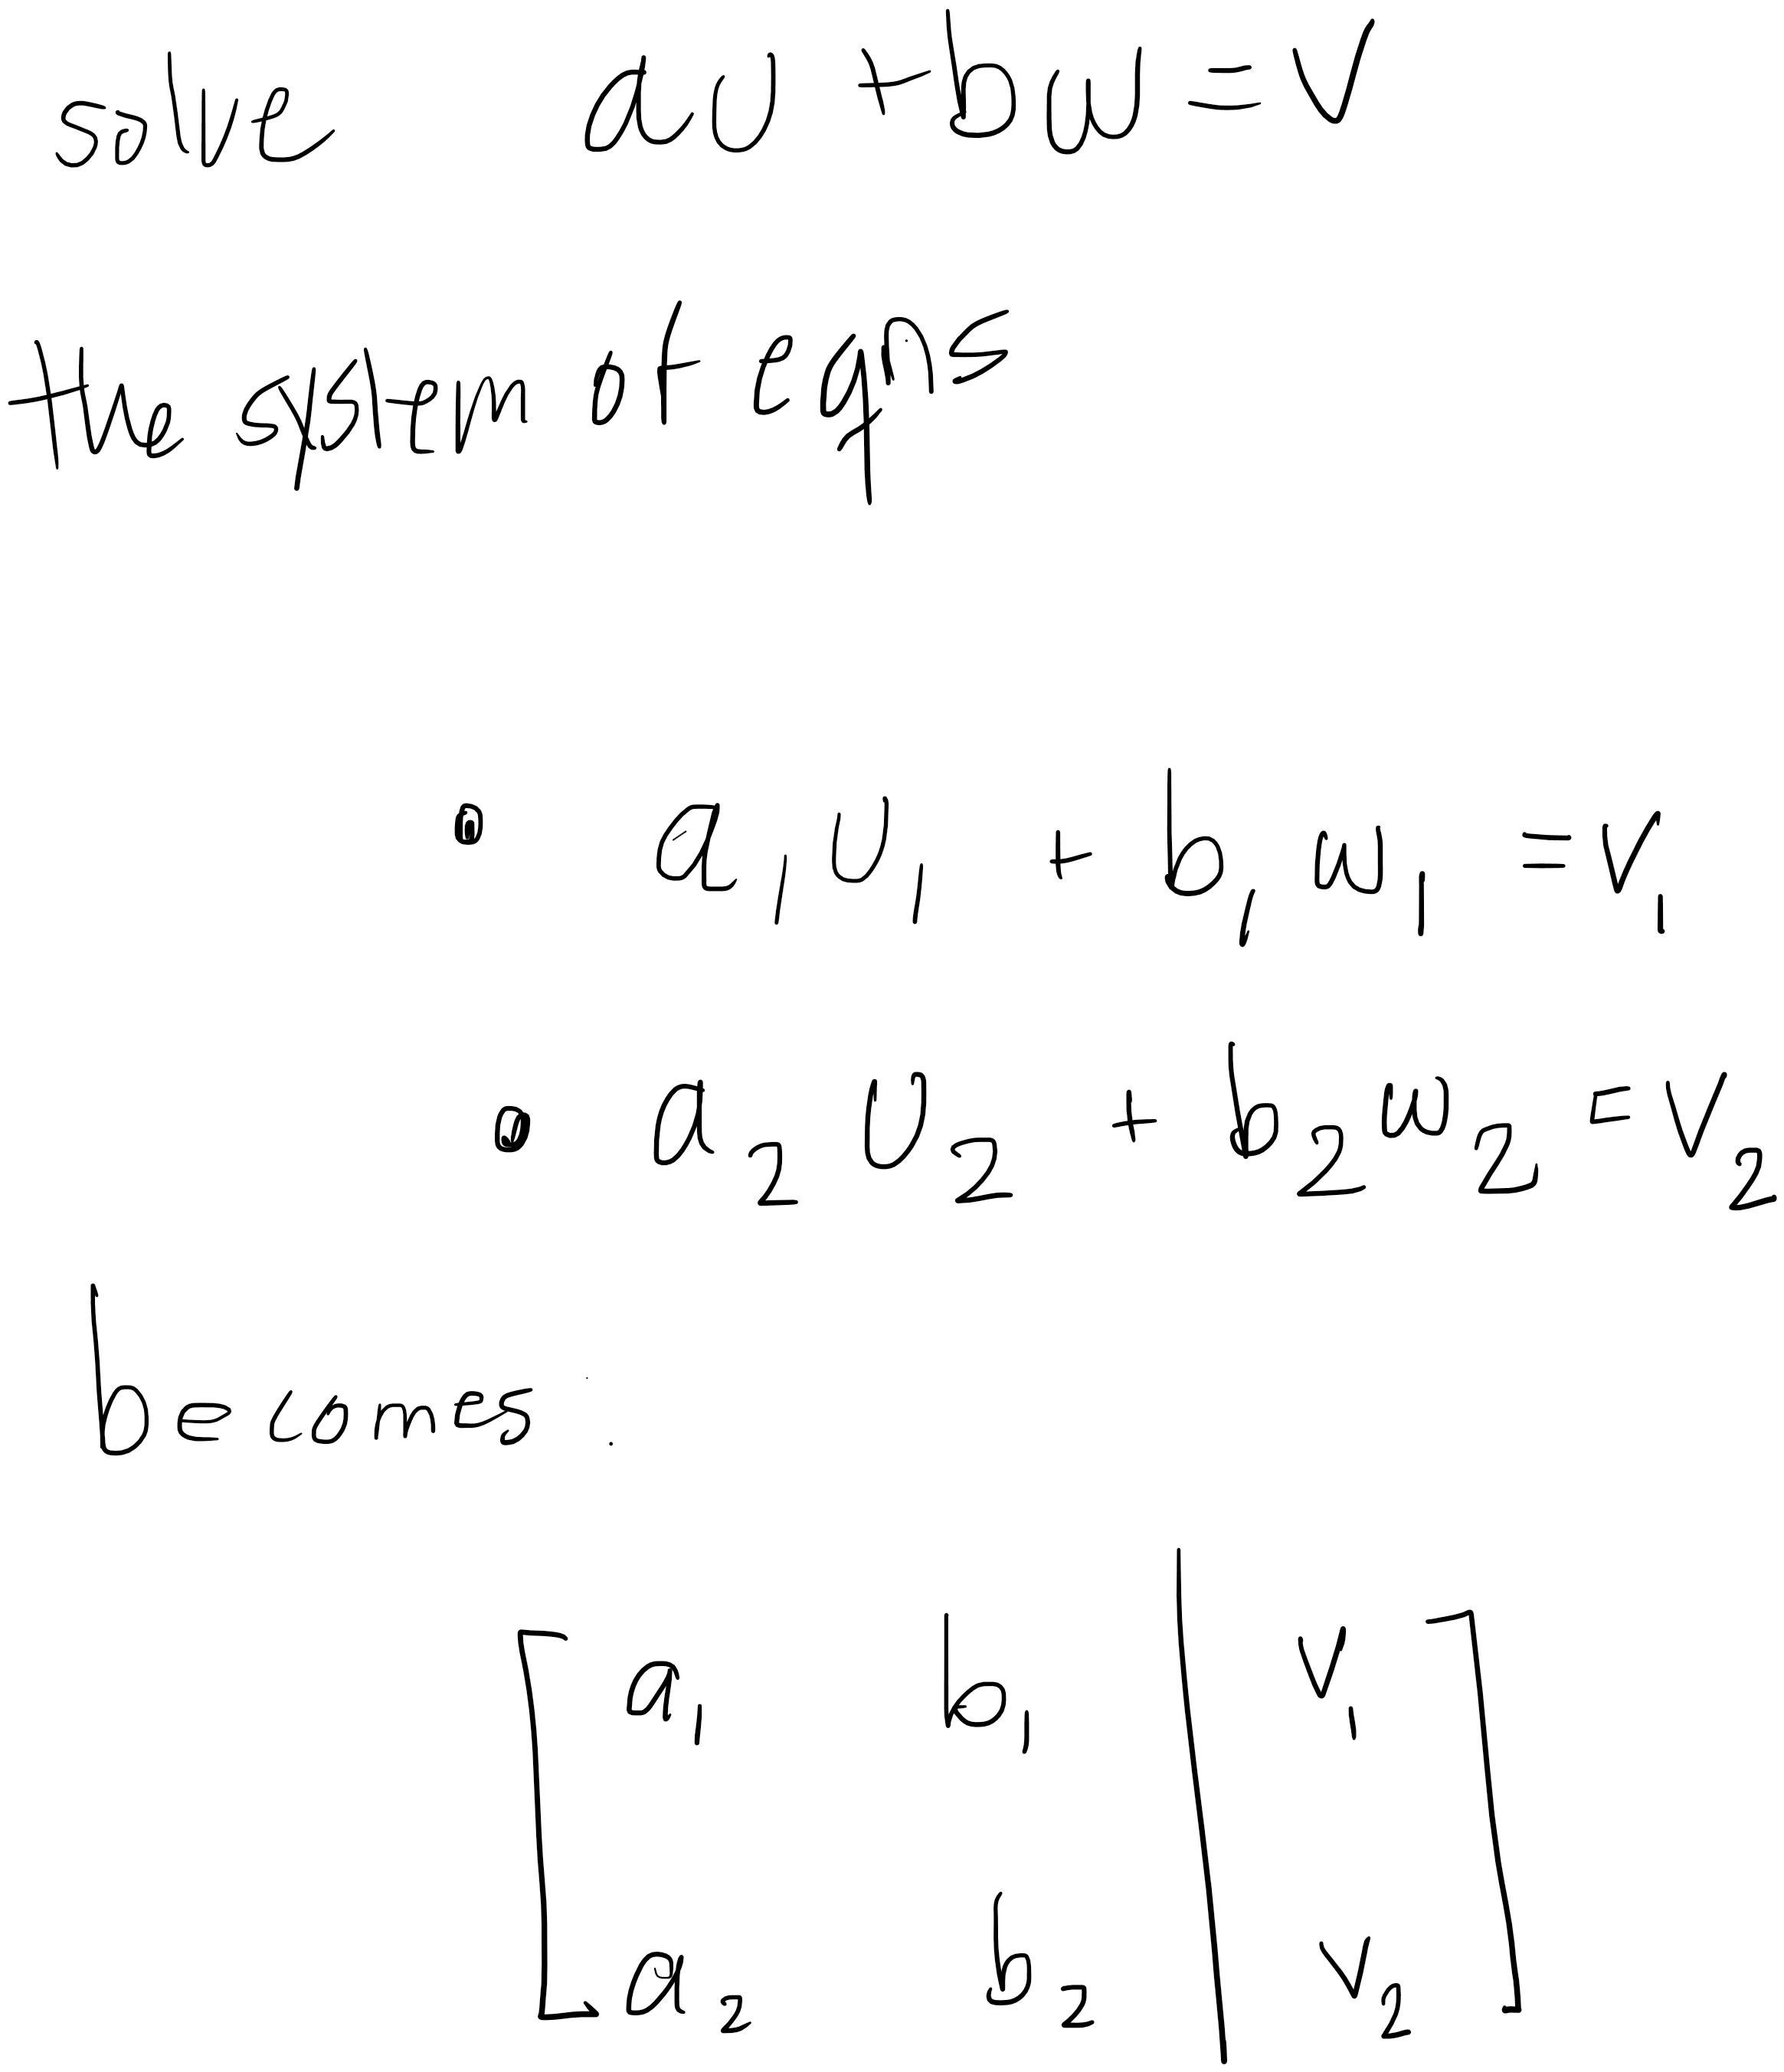 solve au + bw = v
the system of eqns
• a₁u₁ + b₁w₁ = v₁
• a₂u₂ + b₂w₂ = v₂
becomes :
[ a₁ b₁ | v₁ ]
[ a₂ b₂ | v₂ ]